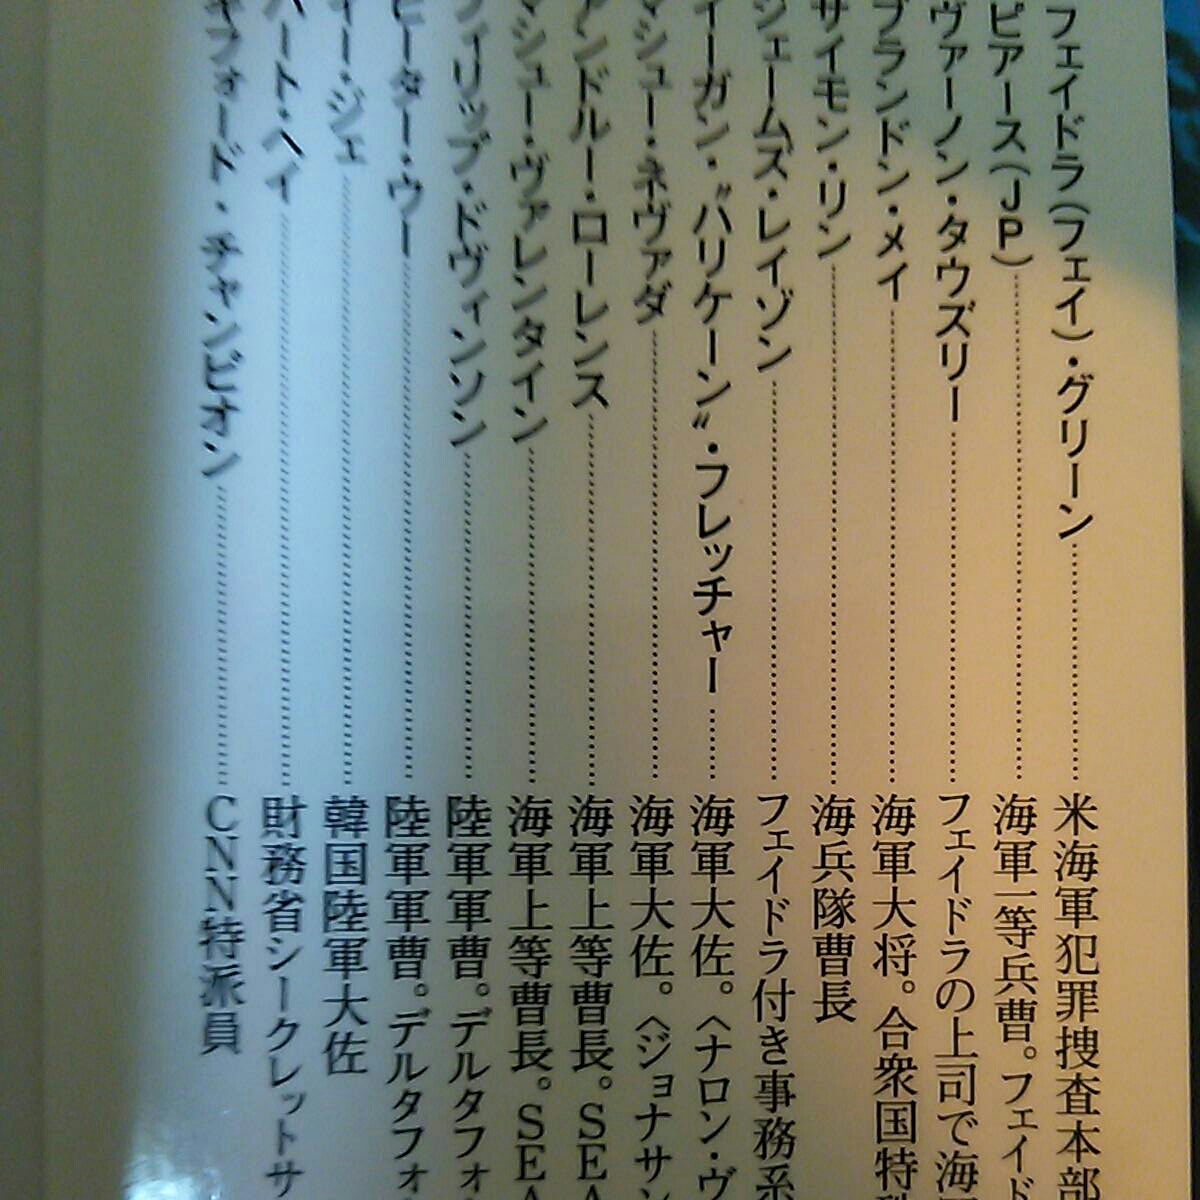 フェイドラ（フェイ）・グリーン……米海軍犯罪捜査本部
ピアース（ＪＰ）……海軍一等兵曹。フェイド
ヴァーノン・タウズリー……フェイドラの上司で海軍
ブランドン・メイ……海軍大将。合衆国特殊
サイモン・リン……海兵隊曹長
ジェームズ・レイゾン……フェイドラ付き事務系
イーガン・〝ハリケーン〟・フレッチャー……海軍大佐。〈ナロン・ヴ
マシュー・ネヴァダ……海軍大佐。〈ジョナサン
アンドルー・ローレンス……海軍上等曹長。ＳＥＡ
マシュー・ヴァレンタイン……海軍上等曹長。ＳＥＡ
フィリップ・ドヴィンソン……陸軍軍曹。デルタフォ
ピーター・ウー……陸軍軍曹。デルタフォ
イー・ジェ……韓国陸軍大佐
バート・ヘイ……財務省シークレットサ
ギフォード・チャンピオン……ＣＮＮ特派員